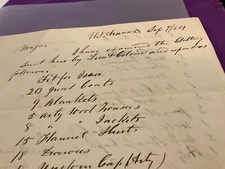 Sep 7/64
Major
I have examined the Clothing
sent here by Lieut and
follows
Fit for Issue
20 Great Coats
9 Blankets
5 Arty Wool Trousers
8 " Jackets
15 Flannel Shirts
18 Drawers
Uniform Caps (Arty)